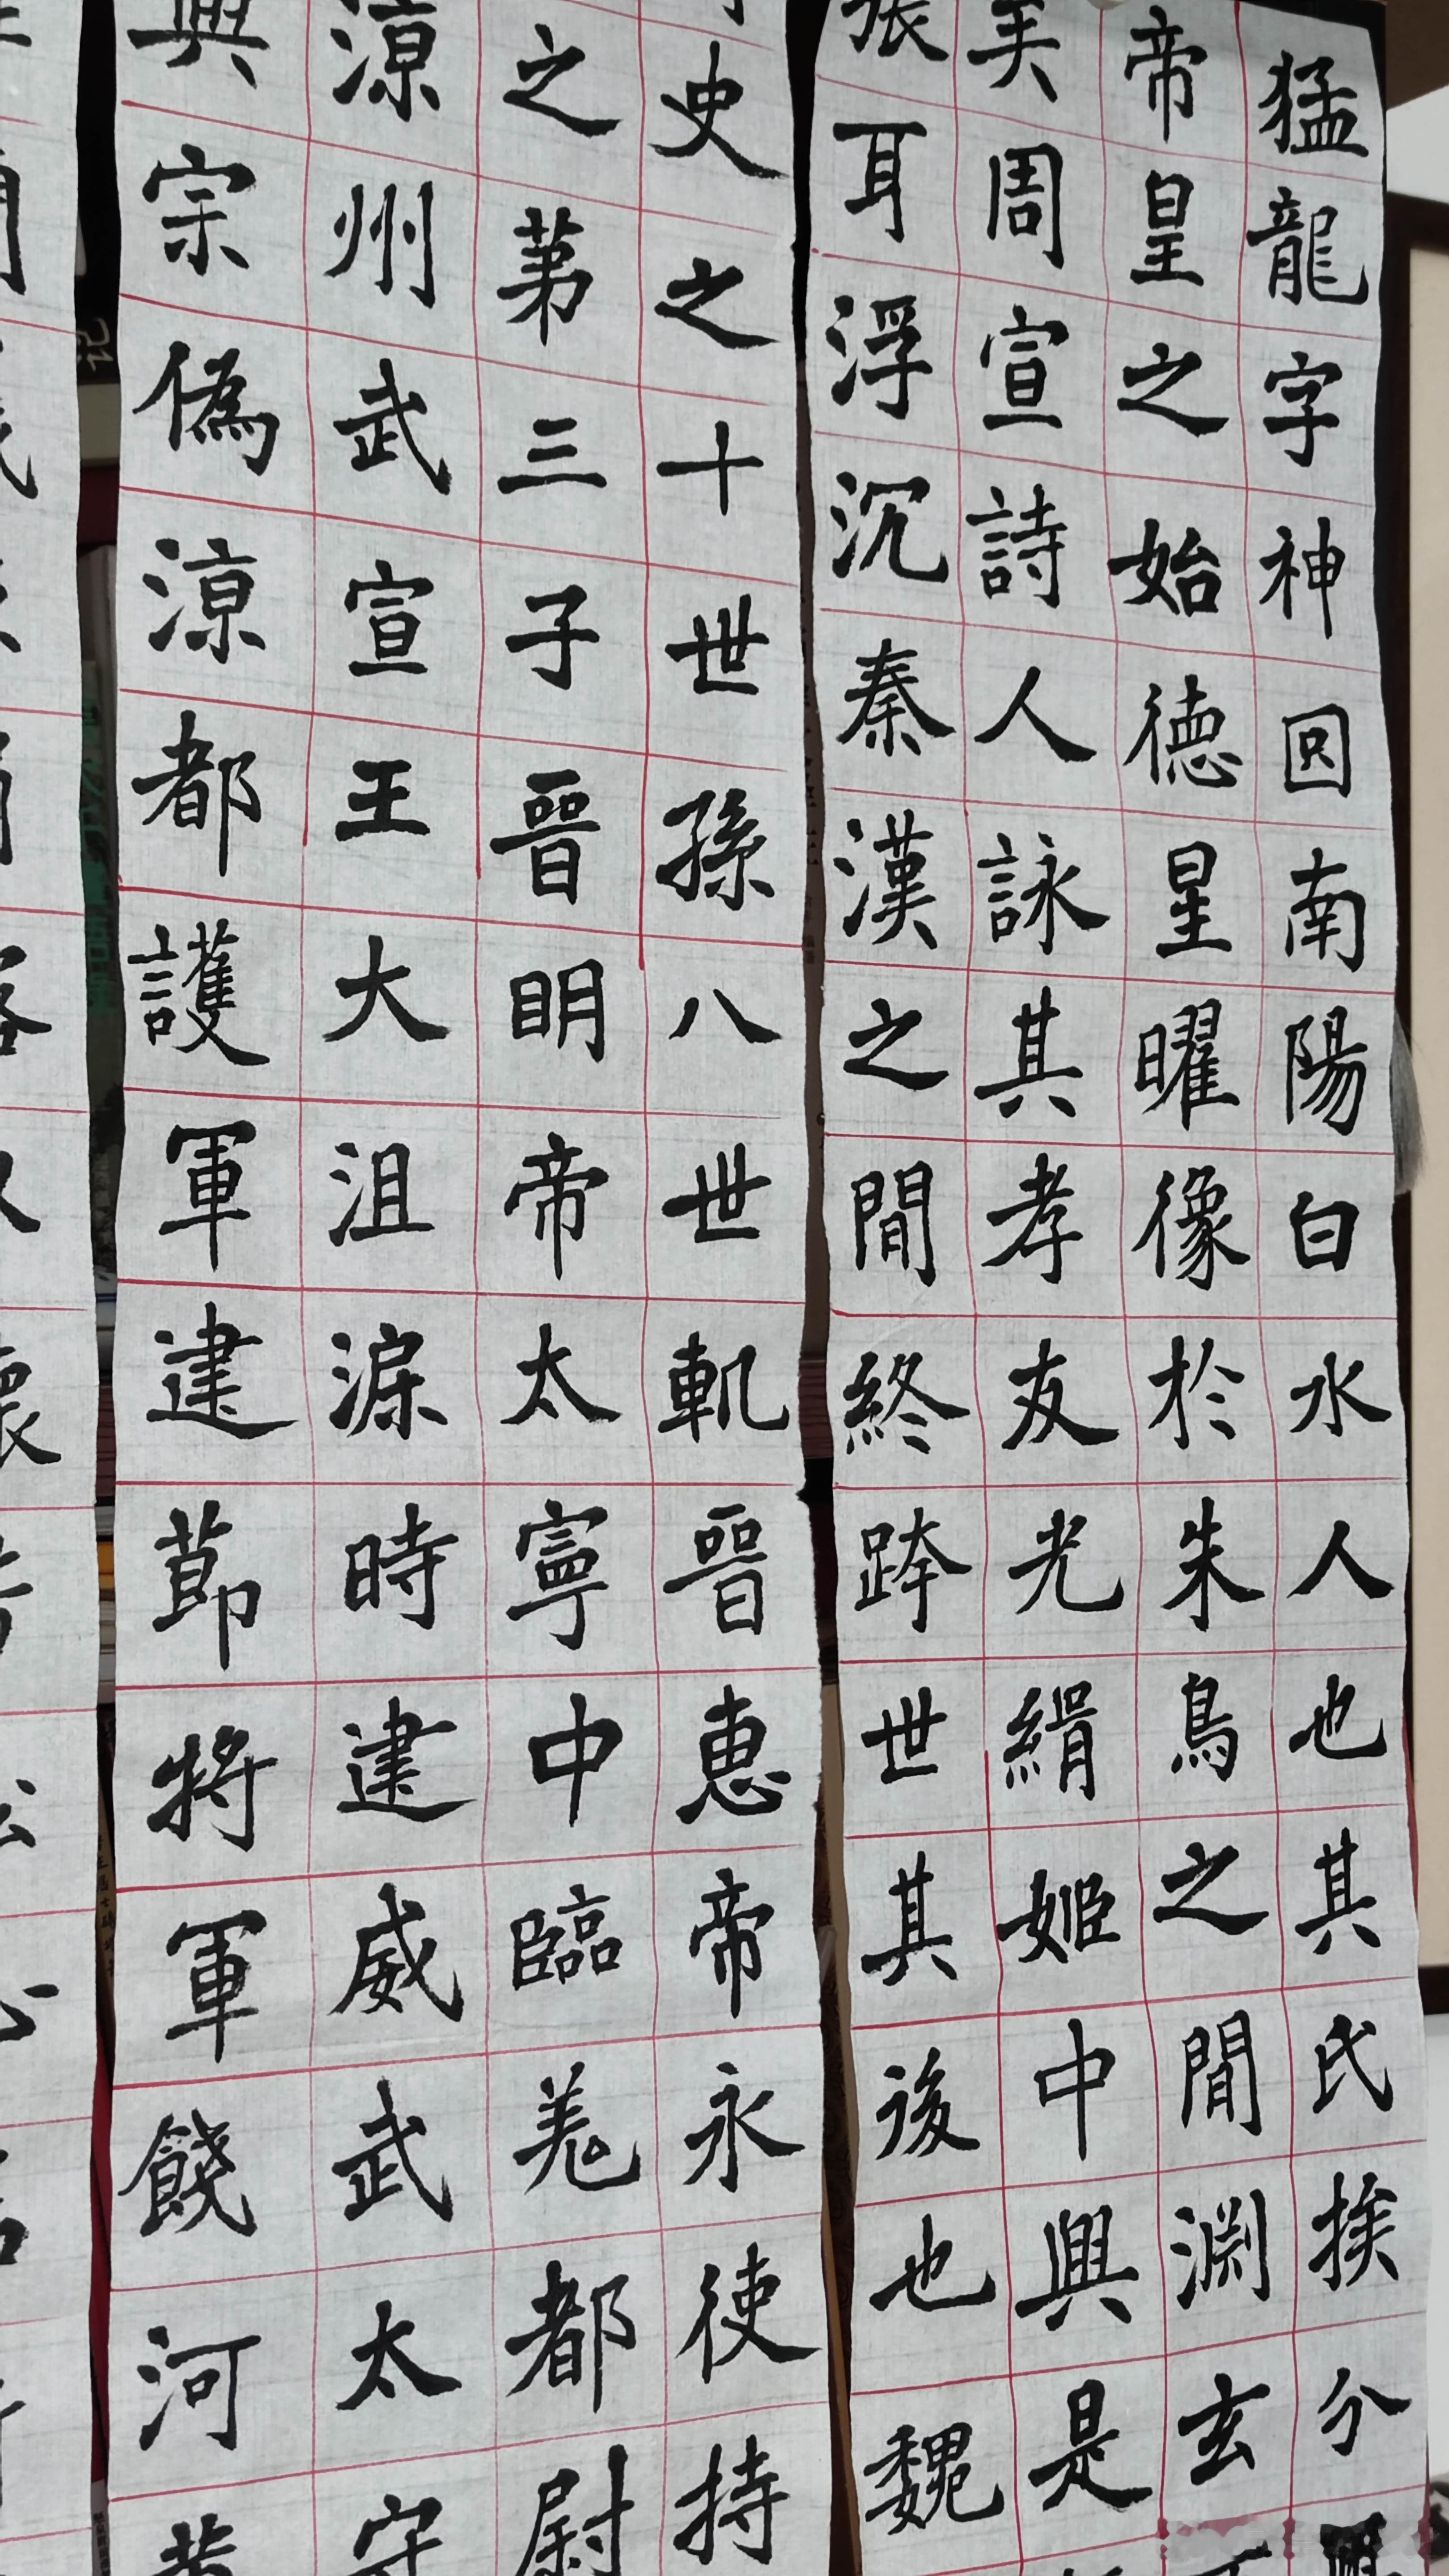 猛龍字神囧南陽白水人也其氏挨兮
帝皇之始德星曜像於朱鳥之間淵玄
美周宣詩人詠其孝友光緝姬中興是
張耳浮沉秦漢之間終跨世其後也魏
史之十世孫八世軌晉惠帝永使持
之第三子晉明帝太寧中臨羌都尉
涼州武宣王大沮渠時建威武太守
興宗偽涼都護軍建節將軍饒河黃